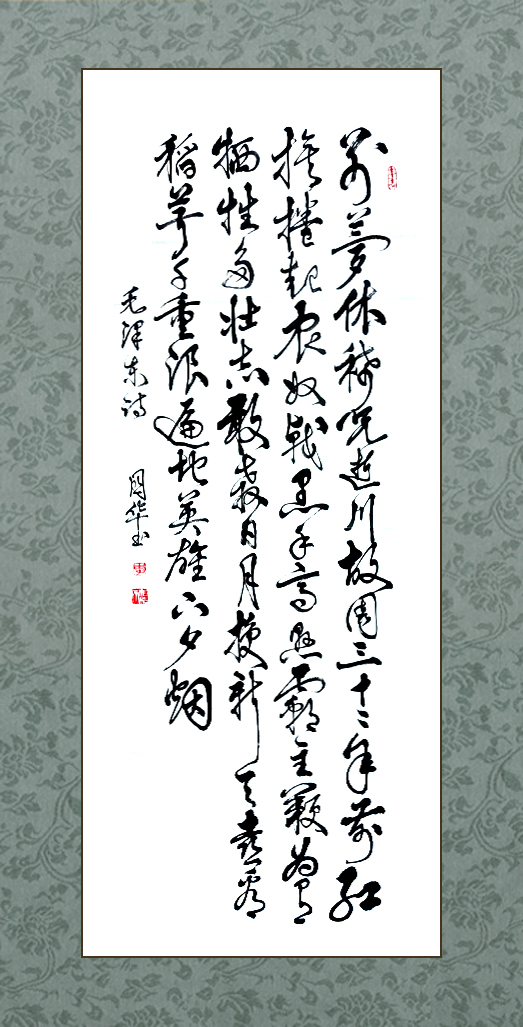 别梦依稀咒逝川故园三十二年前红
旗捲起农奴戟黑手高悬霸主鞭为有
牺牲多壮志敢教日月换新天喜看
稻菽千重浪遍地英雄下夕烟
毛泽东诗
华书